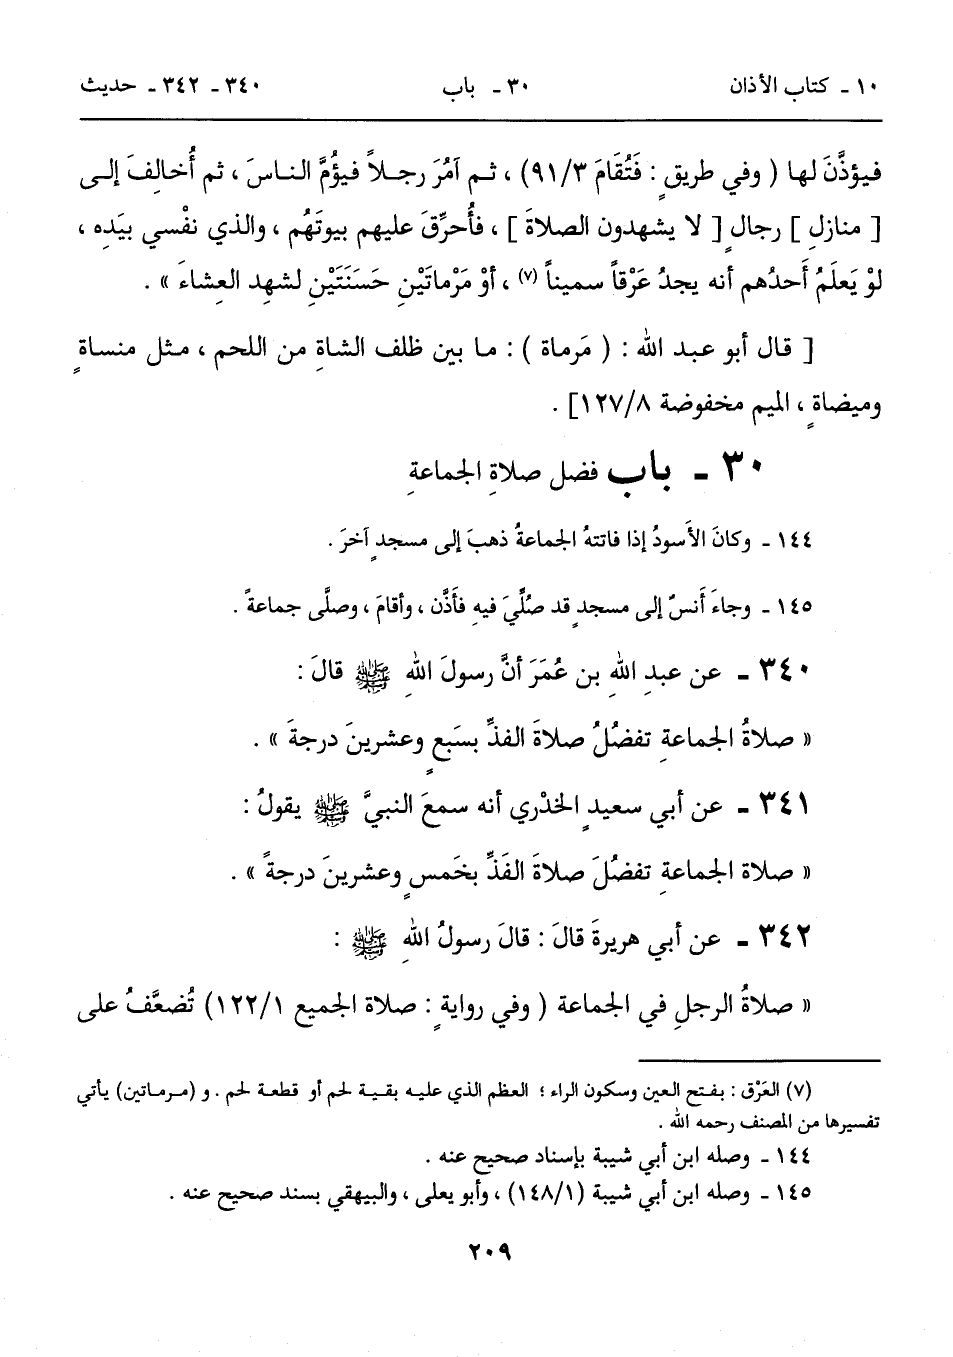 ١٠ - كتاب الأذان ٣٠ - باب ٣٤٠ - ٣٤٢ - حديث
فيؤذَّنَ لها ( وفي طريقٍ : فَتُقَامَ ٩١/٣) ، ثـم آمُرَ رجـلاً فيؤُمَّ النـاسَ ، ثم أُخـالِفَ إلـى
[ منازلِ ] رجالٍ [ لا يشهدون الصلاةَ ] ، فأُحرِّقَ عليهم بيوتَهُم ، والذي نفْسي بيَدِه ،
لوْ يَعلَمُ أَحدُهم أنه يجدُ عَرْقاً سميناً (٧) ، أوْ مَرْماتَيْنِ حَسَنَتَيْنِ لشهِد العِشاءَ » .
[ قال أبو عبـد الله : ( مَرماة ) : مـا بين ظلف الشاةِ من اللحم ، مـثل منساةٍ
وميضاةٍ ، الميم مخفوضة ١٢٧/٨] .
٣٠ - باب فضل صلاةِ الجماعةِ
١٤٤ - وكانَ الأسودُ إذا فاتتهُ الجماعةُ ذهبَ إلى مسجدٍ آخرَ .
١٤٥ - وجاءَ أَنسٌ إلى مسجدٍ قد صُلِّيَ فيهِ فأَذَّن ، وأقامَ ، وصلَّى جماعةً .
٣٤٠ - عن عبدِ اللهِ بنِ عُمَرَ أنَّ رسولَ اللهِ ﷺ قالَ :
« صلاةُ الجماعةِ تفضُلُ صلاةَ الفذِّ بسَبعٍ وعشرينَ درجةَ » .
٣٤١ - عن أبي سعيدٍ الخدْري أنه سمعَ النبيَّ ﷺ يقولُ :
« صلاة الجماعةِ تفضُلَ صلاةَ الفَذِّ بخَمسٍ وعشرينَ درجةً » .
٣٤٢ - عن أبي هريرةَ قالَ : قالَ رسولُ اللهِ ﷺ :
« صلاةُ الرجلِ في الجماعة ( وفي روايةٍ : صلاة الجميع ١٢٢/١) تُضعَّفُ على
(٧) العَرْق : بفتح العين وسكون الراء ؛ العظم الذي عليه بقـية لحم أو قطعة لحم . و (مـرمـاتين) يأتي
تفسيرها من المصنف رحمه الله .
١٤٤ - وصله ابن أبي شيبة بإسناد صحيح عنه .
١٤٥ - وصله ابن أبي شيبة (١٤٨/١) ، وأبو يعلى ، والبيهقي بسند صحيح عنه .
٢٠٩